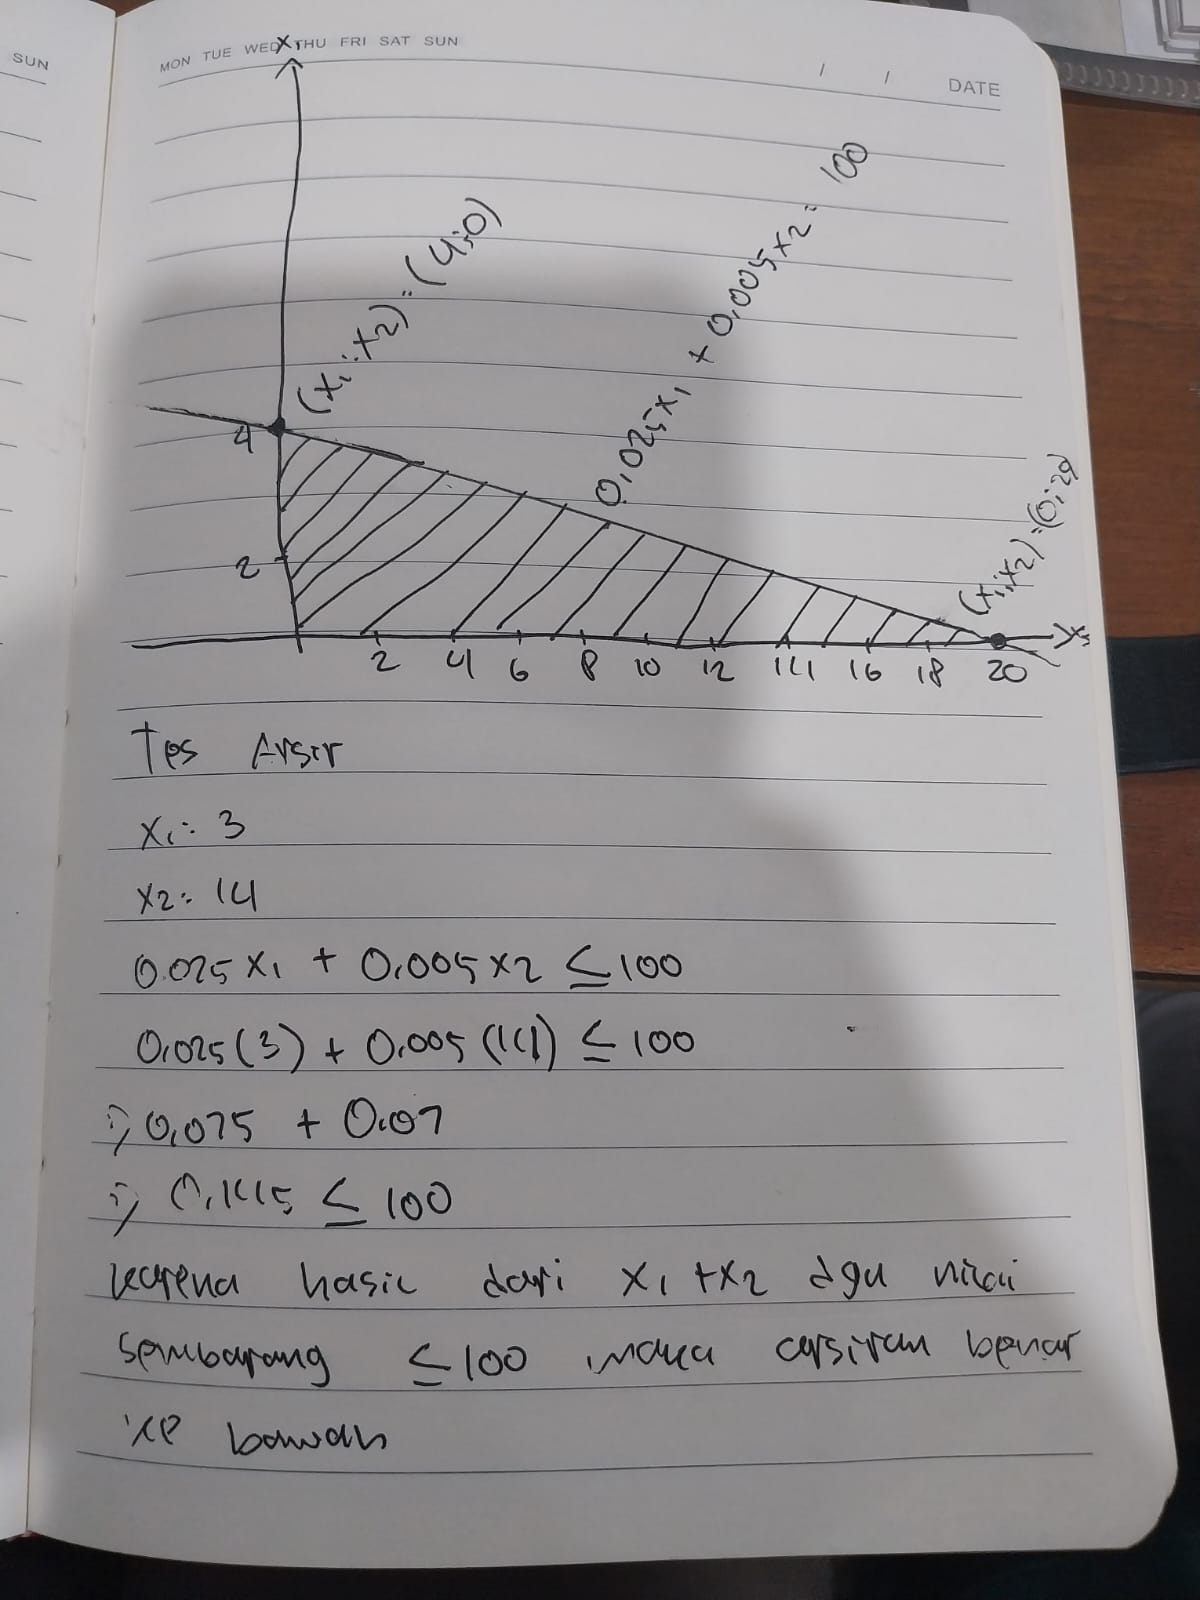 SUN
MON TUE WED THU FRI SAT SUN
X
/ / DATE
(x₁;x₂) = (4;0)
0,025x₁ + 0,005x2 = 100
(x₁;x₂) = (0;20)
4
2
2 4 6 8 10 12 14 16 18 20
Tes Arsir
x₁ = 3
x2 = 14
0.025 x₁ + 0,005 x2 ≤ 100
0,025 (3) + 0,005 (14) ≤ 100
⇒ 0,075 + 0.07
⇒ 0,145 ≤ 100
karena hasil dari x₁ + x2 dgn nilai
sembarang ≤ 100 maka arsiran benar
ke bawah